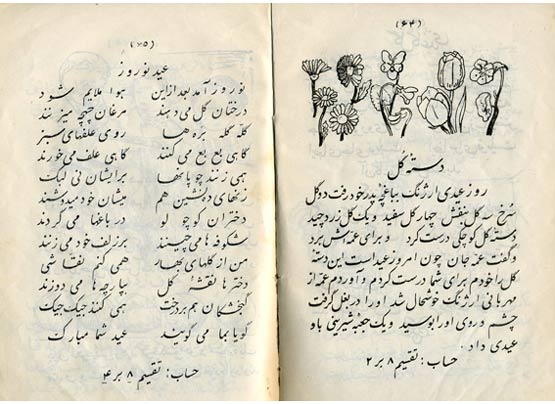 (۶۴)
دسته گل
روز عیدی ارژنگ بباغچه پدر خود رفت دو گل
سرخ سه گل بنفش چهار گل سفید و یک گل زرد چید
دسته گل کوچکی درست کرد و برای عمه‌اش برد
و گفت عمه جان چون امروز عید است این دسته
گل را خودم برای شما درست کردم و آوردم عمه از
مهربانی ارژنگ خوشحال شد او را در بغل گرفت
چشم و روی او را بوسید و یک جعبه شیرینی باو
عیدی داد .
حساب : تقسیم ۸ بر ۲
(۶۵)
عید نوروز
نوروز آمد بعد از این هوا ملایم شود
درختان گل می‌دهند مرغان چهچه میزنند
گله گله بره‌ها روی علفهای سبز
گاهی بع بع می‌کنند گاهی علف می‌خورند
هی زنند چوپانها برایشان نی لبک
زنهای دهنشین هم میشان خود میدوشند
دختران کوچولو در باغها می‌گردند
شکوفه‌ها می‌چینند بر زلف خود می‌زنند
من از گلهای بهار همی کنم نقاشی
دخترها نقشه گل بپارچه‌ها می‌دوزند
گنجشکان هم بر درخت همی کنند جیک جیک
گویا بما می‌گویند عید شما مبارک
حساب : تقسیم ۸ بر ۴